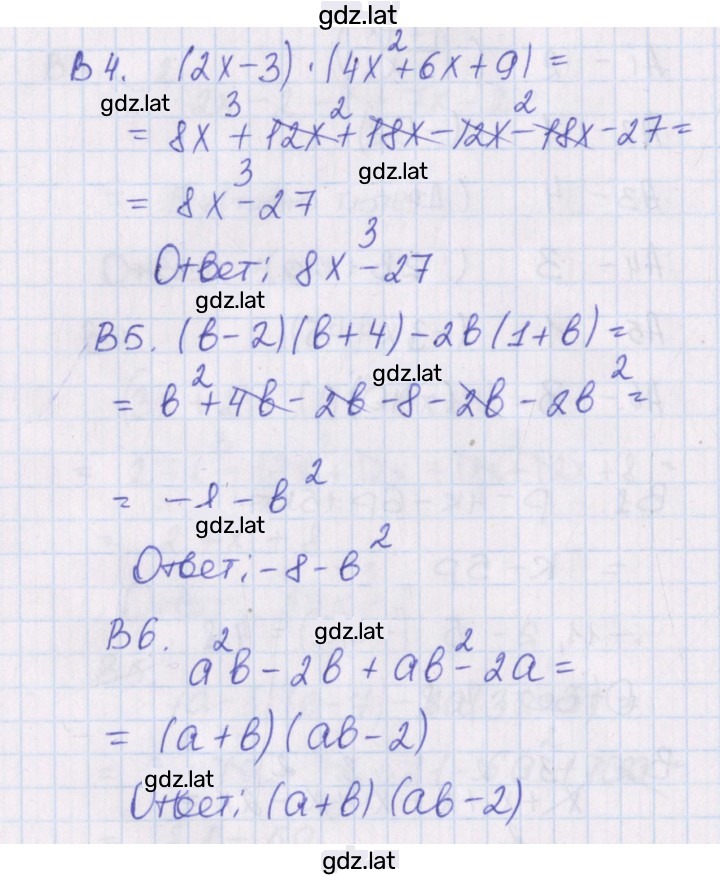 gdz.lat
В 4. (2x-3)·(4x²+6x+9)=
gdz.lat
= 8x³+12x²+18x-12x²-18x-27=
gdz.lat
= 8x³-27
Ответ: 8x³-27
gdz.lat
В5. (в-2)(в+4)-2в(1+в)=
gdz.lat
= в²+4в-2в-8-2в-2в²=
= -8-в²
gdz.lat
Ответ: -8-в²
В6.
gdz.lat
a²в-2в+aв²-2a=
= (a+в)(aв-2)
gdz.lat
Ответ: (a+в)(aв-2)
gdz.lat